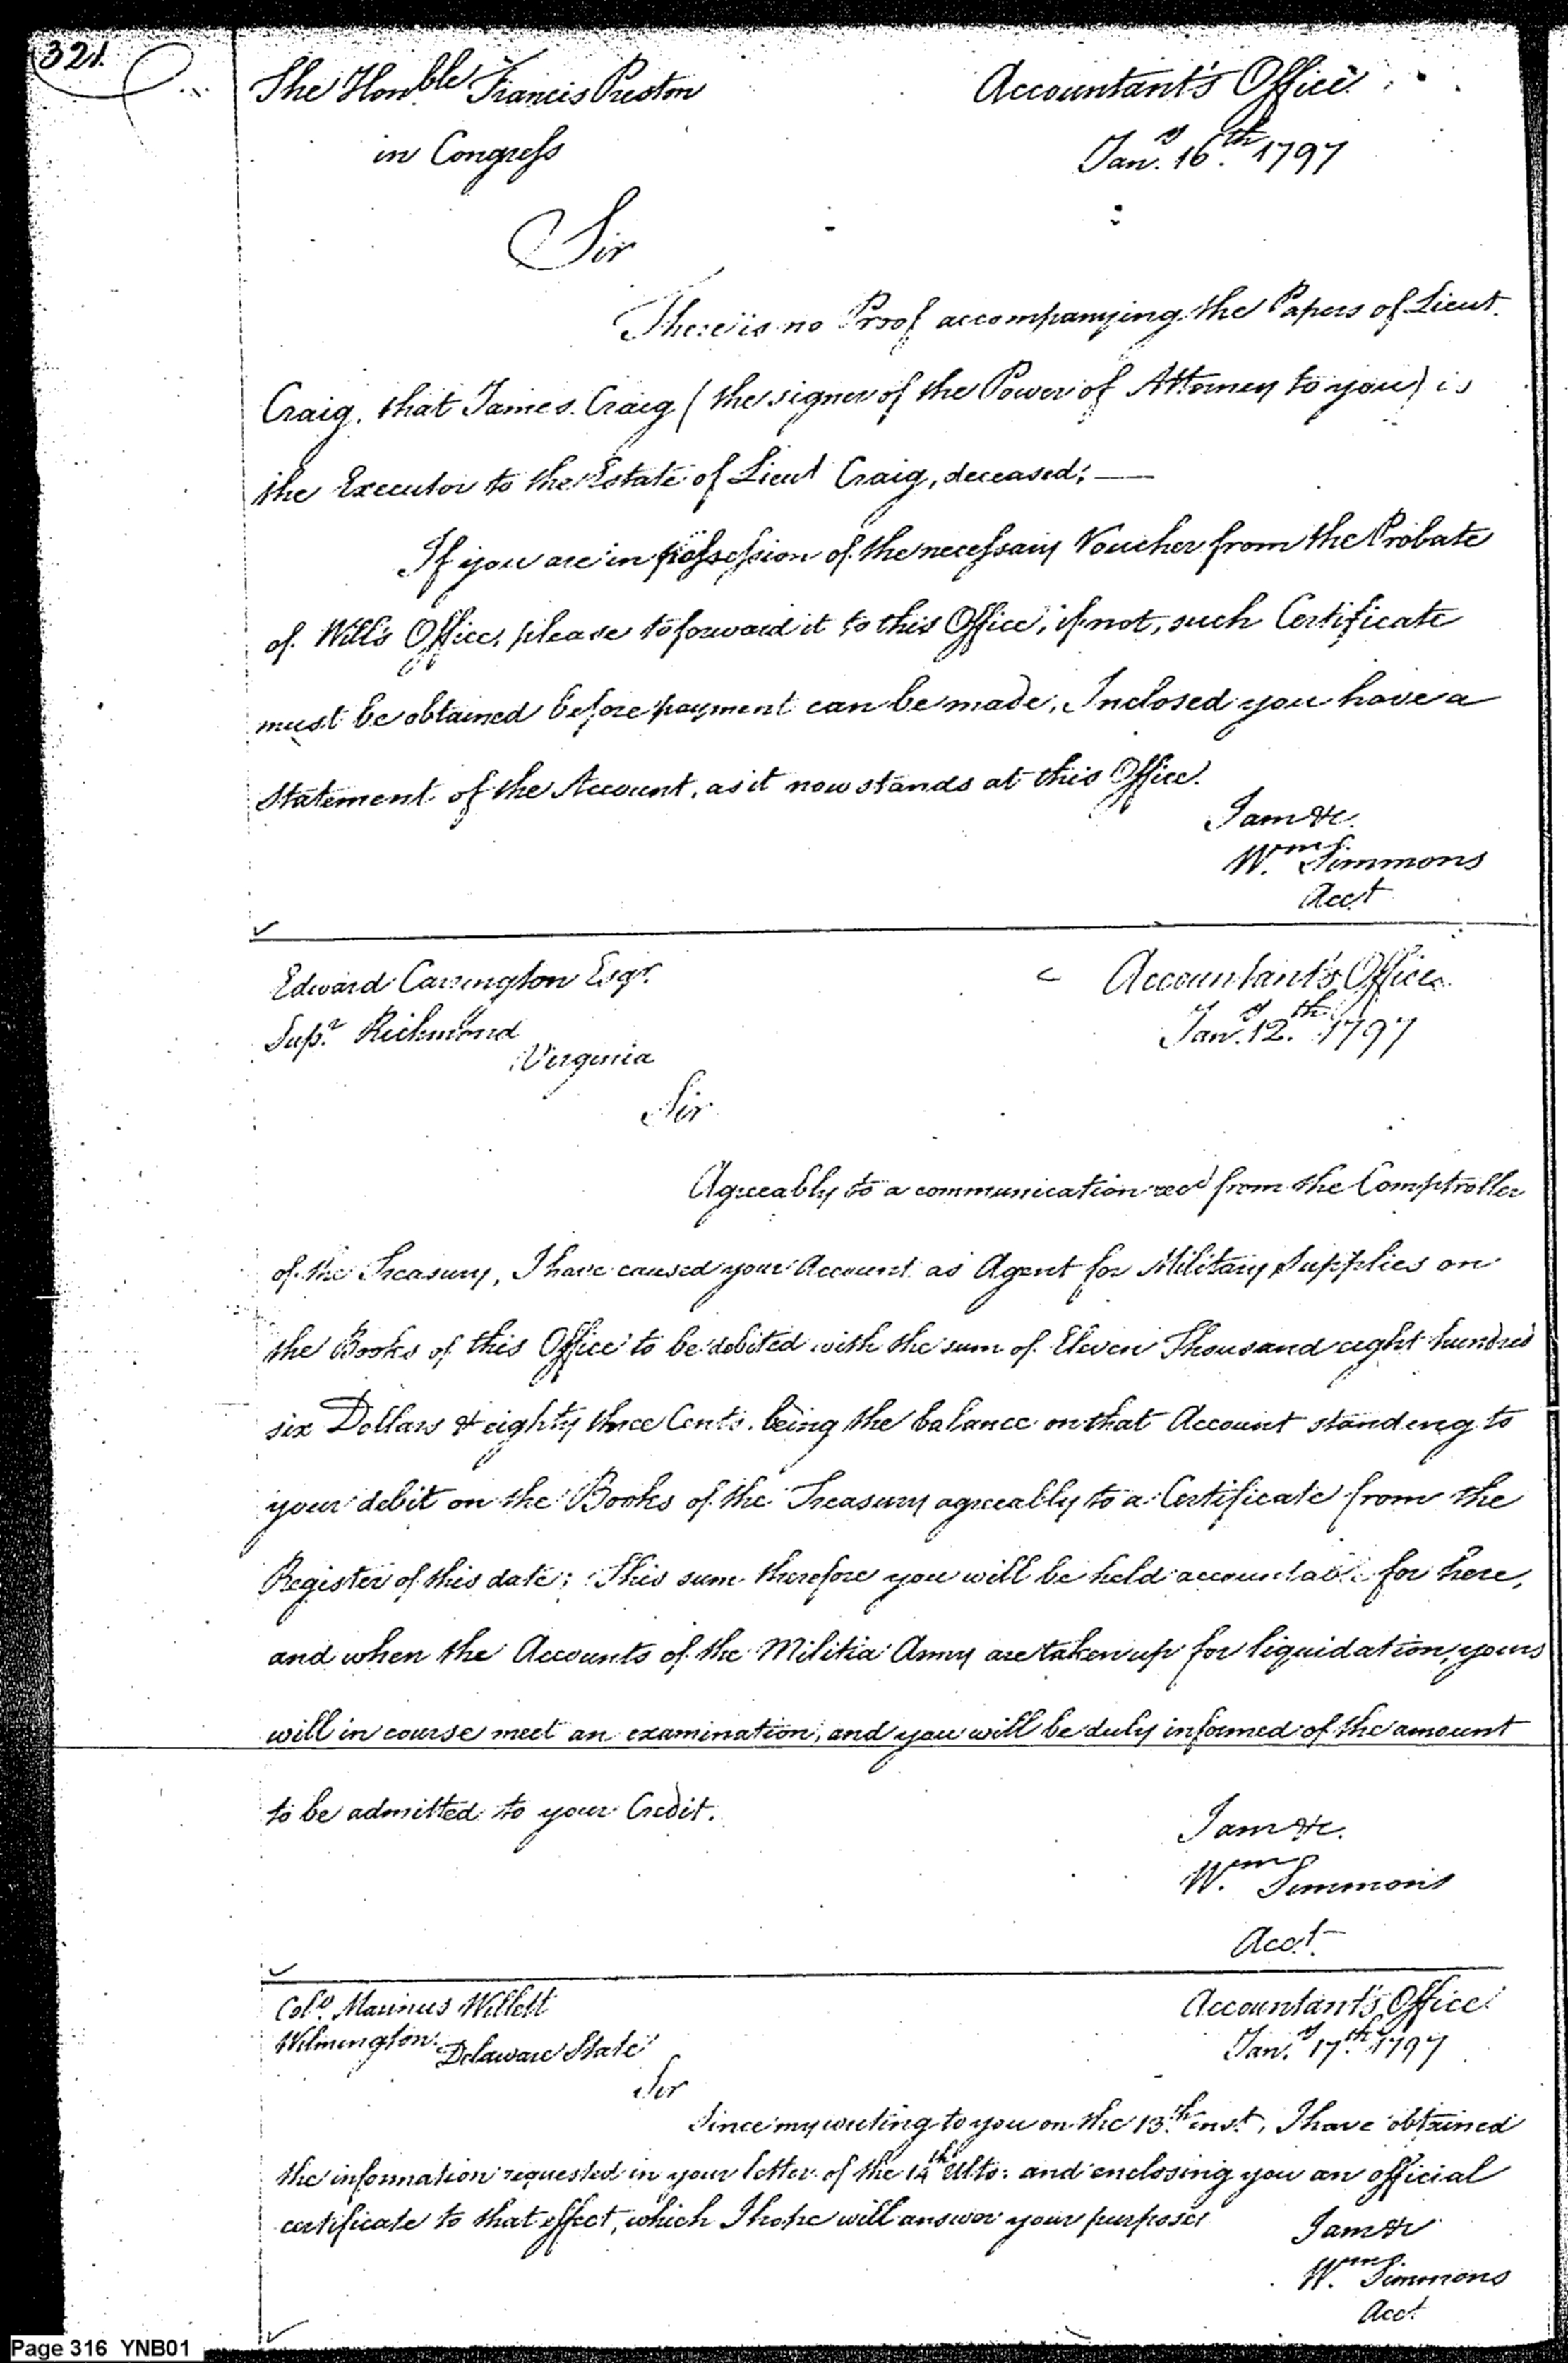 321.
The Honble Francis Preston
Accountant's Office
in Congress
Jany. 16th 1797
Sir
There is no Proof accompanying the Papers of Lieut.
Craig, that James Craig (the signer of the Power of Attorney to you) is
the Executor to the Estate of Lieut Craig, deceased; —
If you are in possession of the necessary Voucher from the Probate
of Wills Office, please to forward it to this Office; if not, such Certificate
must be obtained before payment can be made. Inclosed you have a
Statement of the Account, as it now stands at this Office.
I am &c.
Wm. Simmons
Acct
Edward Carrington Esqr.
Accountant's Office
Supr. Richmond
Jany. 12th 1797
Virginia
Sir
Agreeably to a communication recd from the Comptroller
of the Treasury, I have caused your Account as Agent for Military Supplies on
the Books of this Office to be debited with the sum of Eleven Thousand eight hundred
six Dollars & eighty three Cents. being the balance on that Account standing to
your debit on the Books of the Treasury agreeably to a Certificate from the
Register of this date; This sum therefore you will be held accountable for here,
and when the Accounts of the Militia Army are taken up for liquidation, yours
will in course meet an examination, and you will be duly informed of the amount
to be admitted to your Credit.
I am &c.
Wm. Simmons
Acct.
Colo. Marinus Willett
Accountant's Office
Wilmington. Delaware State
Jany. 17th. 1797
Sir
Since my writing to you on the 13.th inst., I have obtained
the information requested in your letter of the 14th Ulto: and enclosing you an official
certificate to that effect, which I hope will answer your purposes
I am &c
Wm. Simmons
Acct
Page 316 YNB01